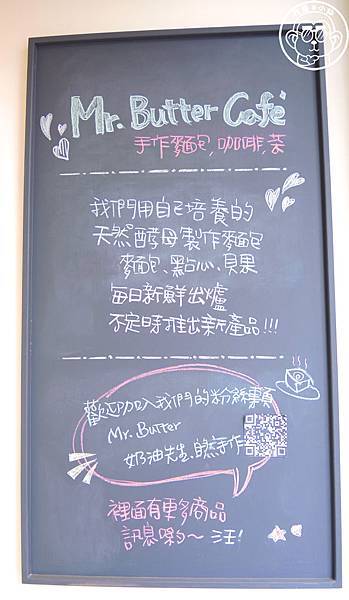 Mr. Butter Café
手作麵包,咖啡,茶
我們用自己培養的
天然酵母製作麵包
麵包、點心、貝果
每日新鮮出爐
不定時推出新產品!!!
歡迎加入我們的粉絲專頁
Mr. Butter
奶油先生、自然手作
裡面有更多商品
訊息喲~ 汪!